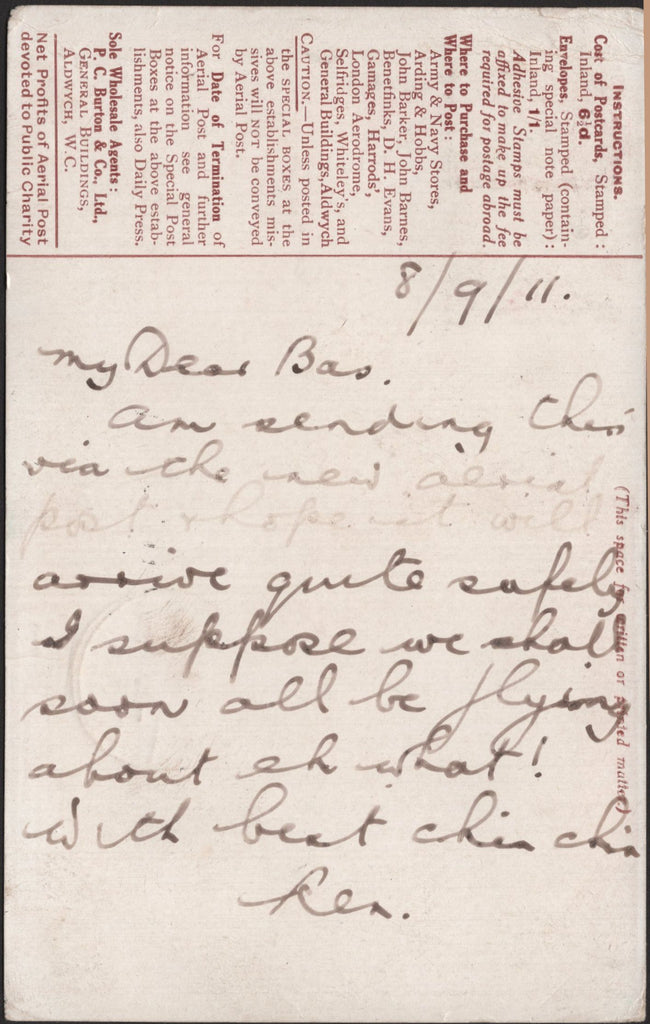 INSTRUCTIONS.
Cost of Postcards, Stamped :
Inland, 6½d.
Envelopes, Stamped (contain-
ing special note paper) :
Inland, 1/1.
Adhesive Stamps must be
affixed to make up the fee
required for postage abroad.
Where to Purchase and
Where to Post :
Army & Navy Stores,
Arding & Hobbs,
John Barker, John Barnes,
Benetfinks, D. H. Evans,
Gamages, Harrods',
London Aerodrome,
Selfridges, Whiteley's, and
General Buildings, Aldwych
CAUTION.—Unless posted in
the SPECIAL BOXES at the
above establishments mis-
sives will NOT be conveyed
by Aerial Post.
For Date of Termination of
Aerial Post and further
information see general
notice on the Special Post
Boxes at the above estab-
lishments, also Daily Press.
Sole Wholesale Agents :
P. C. Burton & Co., Ltd.,
GENERAL BUILDINGS,
ALDWYCH, W.C.
Net Profits of Aerial Post
devoted to Public Charity
8/9/11.
My Dear Bas.
Am sending this
via the new aerial
post & hope it will
arrive quite safely
I suppose we shall
soon all be flying
about eh what!
With best chin chin
Ken.
(This space for written or printed matter)